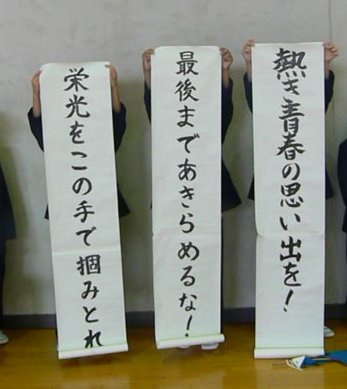 熱き青春の思い出を!
最後まであきらめるな!
栄光をこの手で掴みとれ